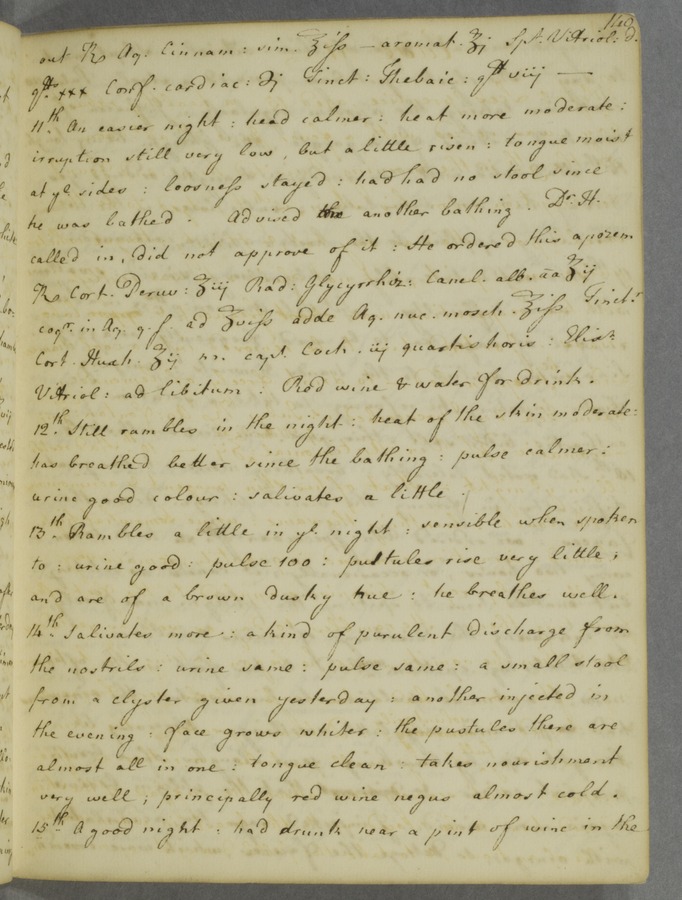 140
out ℞ Aq. Cinnam: sim. ℥iſs — aromat. ʒj Spt. Vitriol: d.
gtts. xxx Conf. cardiac: ℈j Tinct: Thebaic: gtt viij —
11th. An easier night: head calmer: heat more moderate:
irruption still very low, but a little risen: tongue moist
at ye. sides: loosness stayed: had had no stool since
he was bathed. Advised the another bathing. Dr. H.
called in, did not approve of it: He ordered this apozem
℞ Cort. Peruv: ℥iij Rad: Glycyrrhiz: Canel. alb. āā ʒij
coqr. in Aq. q.s. ad ℥viſs adde Aq. nuc. mosch. ℥iſs Tinctr
Cort. Huxh. ʒij capt. Coch. iij quartis horis: Elixr.
Vitriol: ad libitum. Red wine & water for drink.
12th. Still rambles in the night: heat of the skin moderate:
has breathed better since the bathing: pulse calmer:
urine good colour: salivates a little.
13th. Rambles a little in ye. night: sensible when spoken
to: urine good: pulse 100: pustules rise very little;
and are of a brown dusky hue: he breathes well.
14th. Salivates more: a kind of purulent discharge from
the nostrils: urine same: pulse same: a small stool
from a clyster given yesterday: another injected in
the evening: face grows whiter: the pustules there are
almost all in one: tongue clean: takes nourishment
very well; principally red wine negus almost cold.
15th. A good night: had drunk near a pint of wine in the